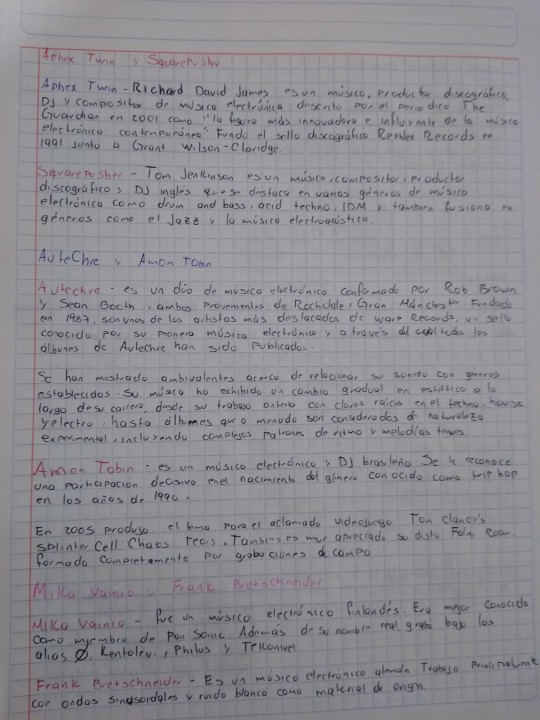 Aphex Twin y Squarepusher
Aphex Twin - Richard David James es un músico, productor discográfico,
DJ y compositor de música electrónica descrito por el periodico The
Guardian en 2001 como "la figura más innovadora e influyente de la música
electrónica contemporánea" Fundó el sello discográfico Rephlex Records en
1991 junto a Grant Wilson-Claridge.
Squarepusher - Tom Jenkinson es un músico, compositor, productor
discográfico y DJ ingles que se destaca en varios géneros de música
electrónica como drum and bass, acid techno, IDM y tambien fusiona en
géneros como el Jazz y la música electroacústica.
AuteChre y Amon Tobin
Autechre - es un dúo de música electrónica conformado por Rob Brown
y Sean Booth, ambos provenientes de Rochdale, Gran Mánchester Fundado
en 1987, son unos de los artistas más destacados de warp Records, un sello
conocido por su pionera música electrónica y a través del cual todos los
álbunes de Autechre han sido publicados.
Se han mostrado ambivalentes acerca de relacionar su sonido con géneros
establecidos. Su música ha exhibido un cambio gradual en estilitica a lo
largo de su carrera, desde su trabajo anterio con claros raices en el techno, house
y electro, hasta álbumes que a menudo son considerados de naturaleza
experimental, incluyendo complejos patrones de ritmo y melodías tenues
Amon Tobin - es un músico electrónico y DJ brasileño Se le reconoce
una participación decisiva en el nacimiento del género conocido como trip hop
en los años de 1990.
En 2005 produjo el tema para el aclamado videojuego Tom Clancy's
Splinter Cell: Chaos Teory. Tambien es muy apreciado su disco Foley Room
formado completamente por grabaciones de campo
Mika Vainio y Frank Bretschneider
Mika Vainio - fue un músico electrónico finlandés. Era mejor conocido
como miembro de Pan Sonic. Además de su nombre real grabó bajo los
alias Ø, Kentolevi, Philus y Tekonivel
Frank Bretschneider - Es un músico electrónico alemán Trabaja principalmente
con ondas sinusoidales y ruido blanco como material de origen.